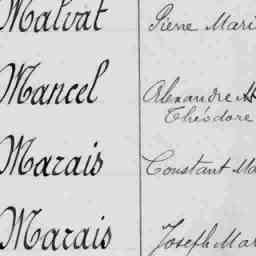 Malvat Pierre Mari
Mancel Alexandre
Théodore
Marais Constant Ma
Marais Joseph Mar